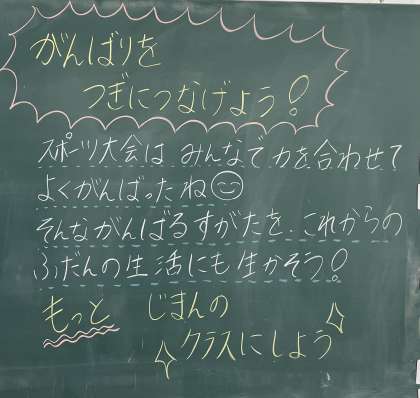 がんばりを
つぎにつなげよう!
スポーツ大会は みんなで力を合わせて
よくがんばったね
そんながんばるすがたを、これからの
ふだんの生活にも生かそう!
もっと じまんの
クラスにしよう